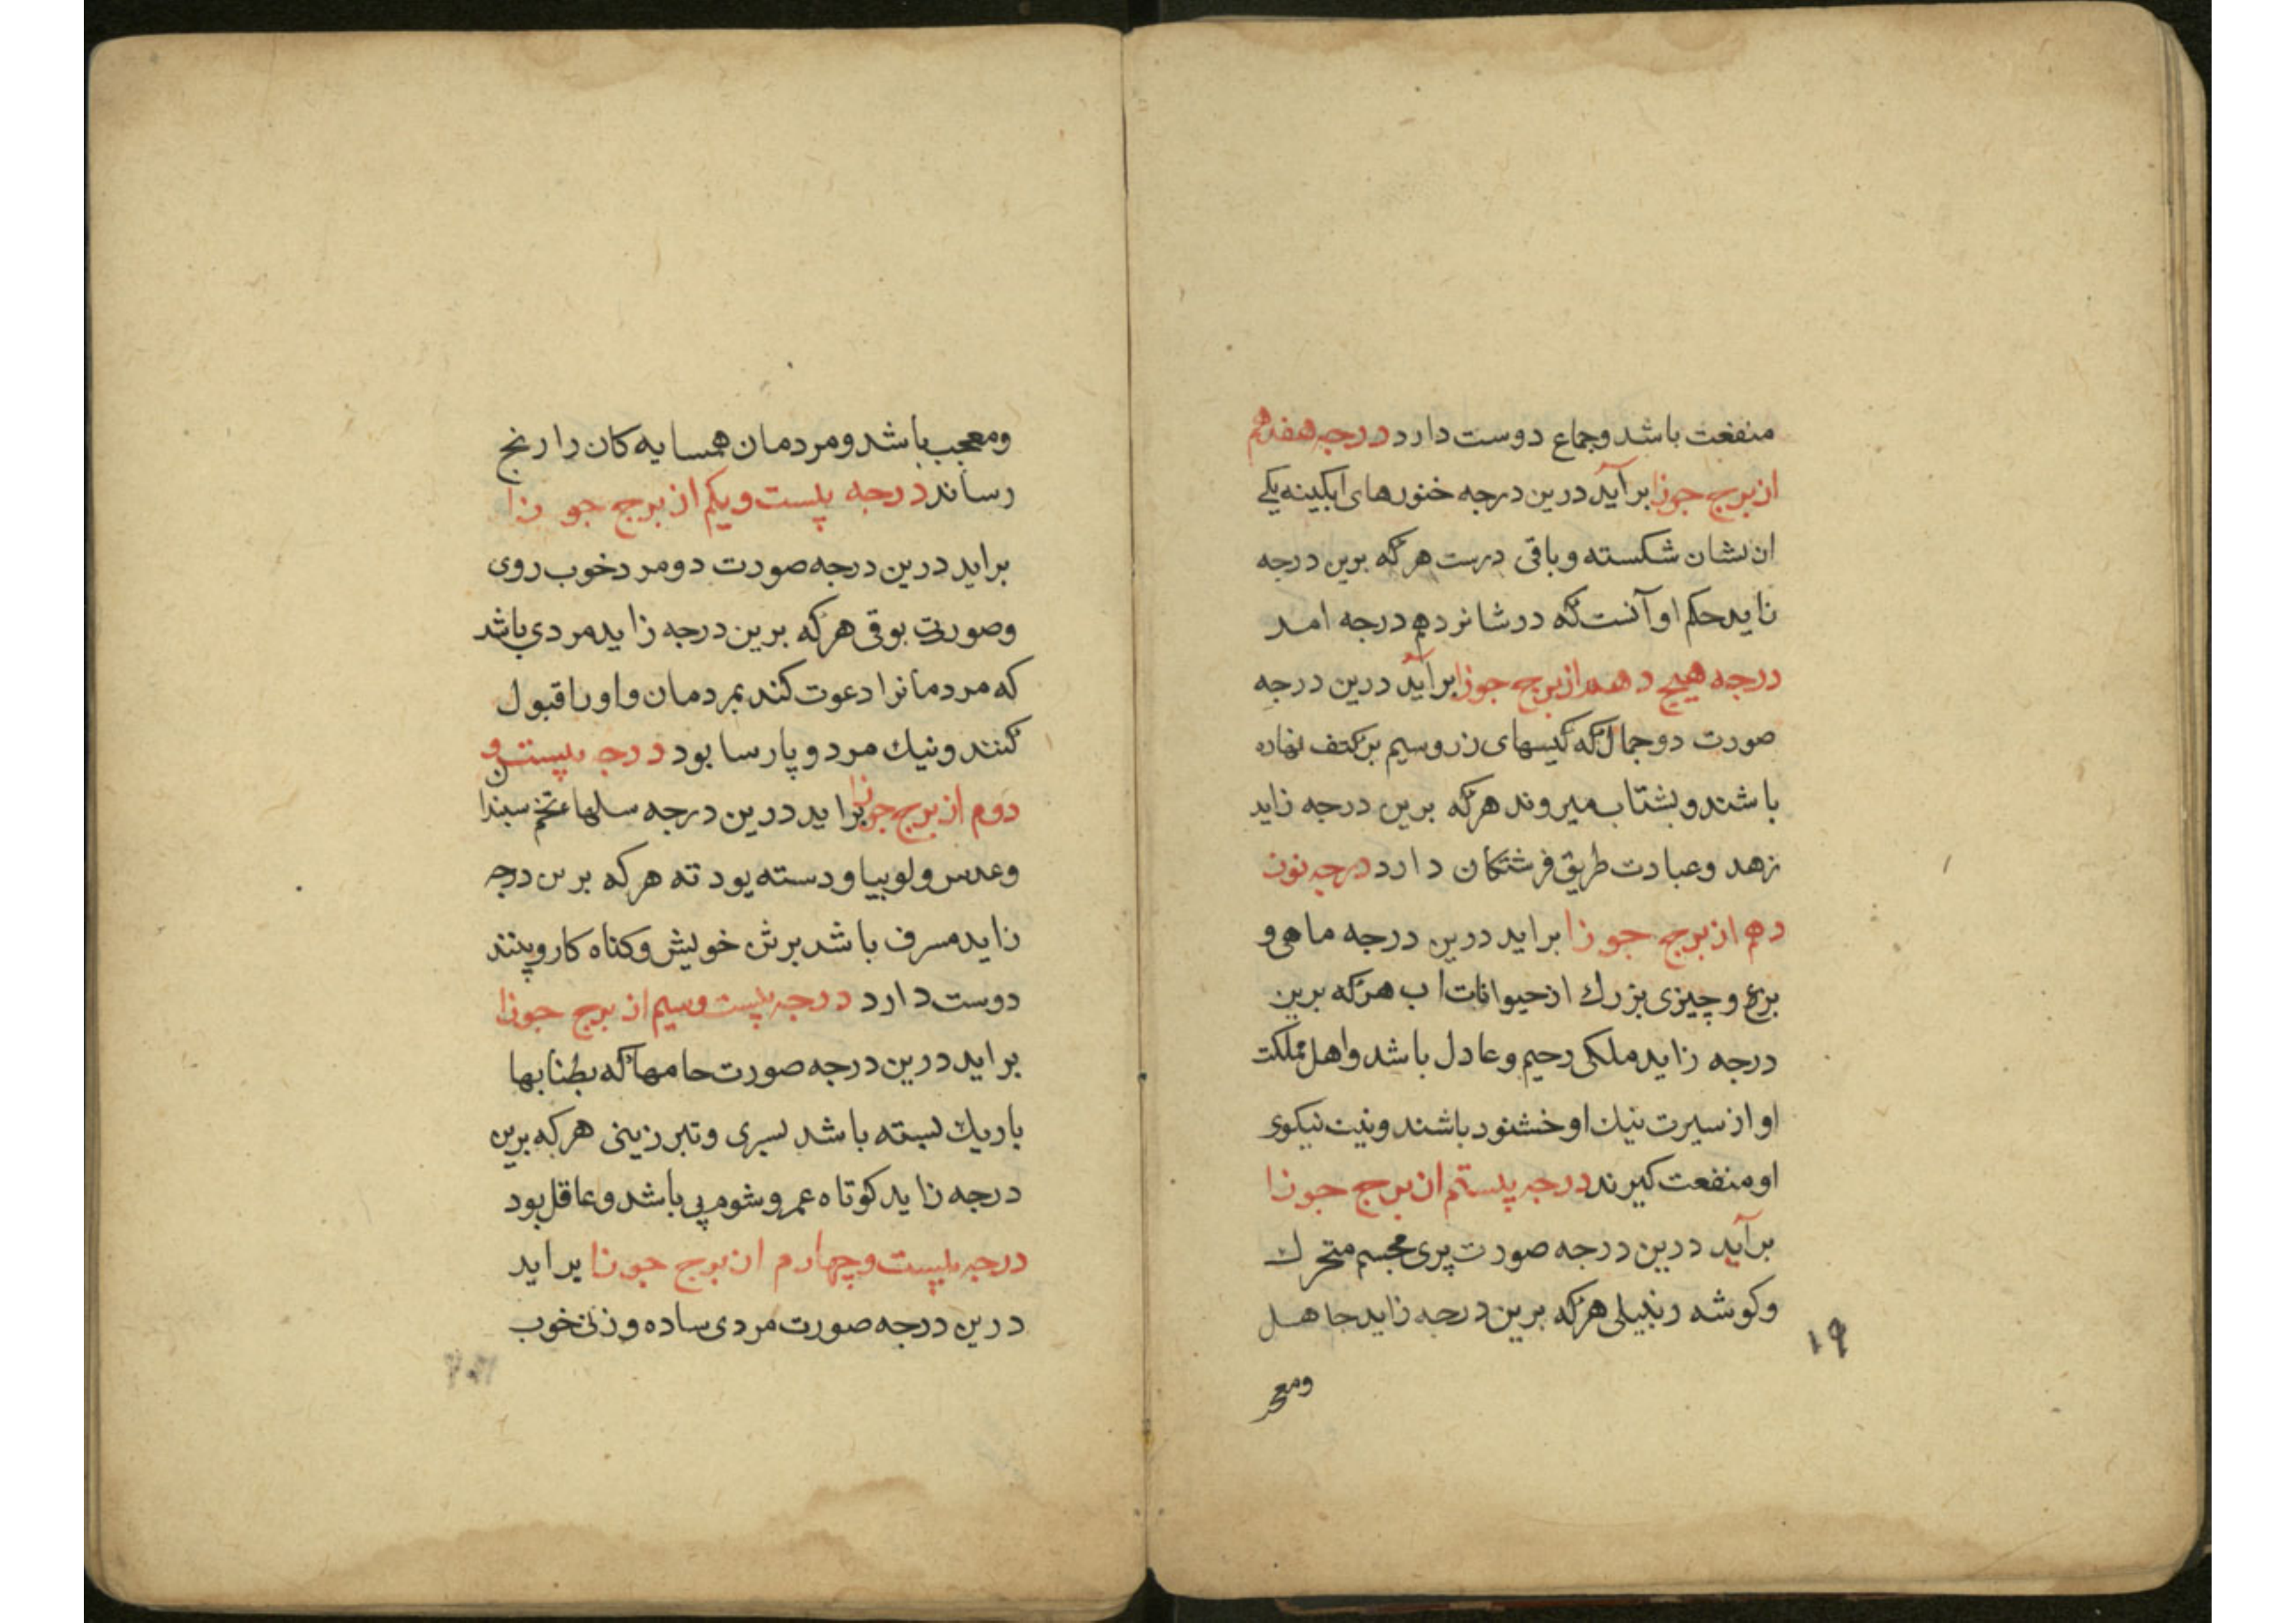 منفعت باشد وجماع دوست دارد درجه هفدهم
از برج جوزا برآید درین درجه خنورهای ابکینه یکے
ازیشان شکسته وباقی درست هرکه برین درجه
زاید حکم او آنست که در شانزدهم درجه امد
درجه هیج دهم از برج جوزا برآید درین درجه
صورت دو جمال که کیسهای زر وسیم بر کتف نهاده
باشند وبشتاب میروند هرکه برین درجه زاید
زهد وعبادت طریق فرشتکان دارد درجه نوز
دهم از برج جوزا براید درین درجه ماهی و
بزغ وچیزی بزرك از حیوانات اب هرکه برین
درجه زاید ملکی رحیم وعادل باشد واهل مملکت
او از سیرت نیك او خشنود باشند ونیت نیکوی
او منفعت کیرند درجه بیستم از برج جوزا
برآید درین درجه صورت پری مجسم متحرك
وکوشه زنبیلی هرکه برین درجه زاید جاهل
۱۹
ومعجب باشد ومردمان همسایه کان را رنج
رساند درجه بیست ویکم از برج جوزا
براید درین درجه صورت دو مرد خوب روی
وصورت بوقی هرکه برین درجه زاید مردی باشد
که مردمانرا دعوت کند بمردمان واورا قبول
کنند ونیك مرد و پارسا بود درجه بیست و
دوم از برج جوزا براید درین درجه تخم
وعدس ولوبیا ودسته هرکه برین درجه
زاید مسرف باشد برش خویش وکناه کار وپنند
دوست دارد درجه بیست وسیم از برج جوزا
براید درین درجه صورت که بطنابها
باریك بسته باشد وتبرزینی هرکه برین
درجه زاید کوتاه عمر وشوم پی باشد وعاقل بود
درجه بیست وچهارم از برج جوزا براید
درین درجه صورت مردی ساده وزنی خوب